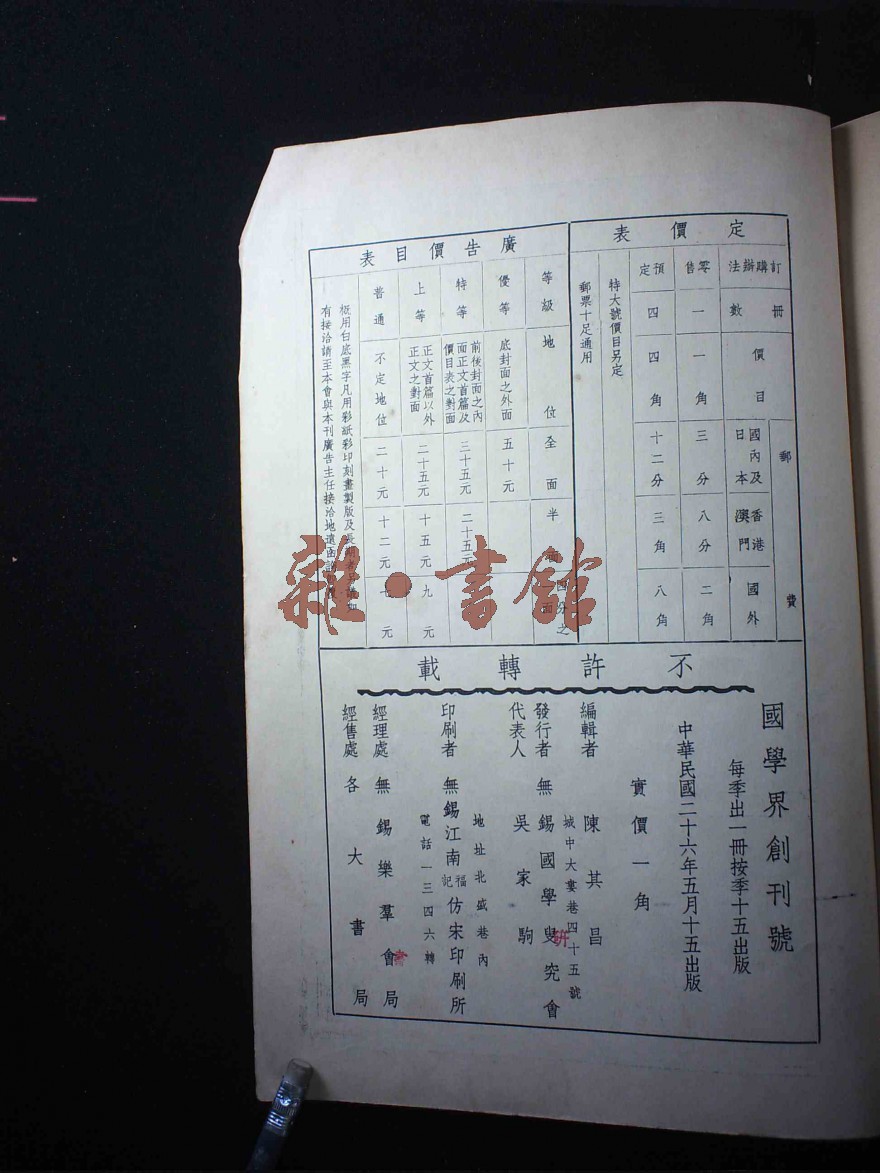 定價表
訂購辦法 冊數 價目 郵費 國內及日本 香港澳門 國外
零售 一 一角 三分 八分 二角
預定 四 四角 十二分 三角 八角
特大號價目另定
郵票十足通用
廣告價目表
等級 地位 全面 半面 四分之一面
優等 底封面之外面 五十元
特等 前後封面之內面正文首篇及價目表之對面 三十五元 二十五元
上等 正文首篇以外正文之對面 二十五元 十五元 九元
普通 不定地位 二十元 十二元 七元
概用白底黑字凡用彩紙彩印刻畫製版及長期者
有接洽請至本會與本刊廣告主任接洽地遠函
不許轉載
國學界創刊號
每季出一冊按季十五出版
中華民國二十六年五月十五出版
實價一角
編輯者 陳其昌
城中大婁巷四十五號
發行者 無錫國學叟究會
研
代表人 吳家駒
地址北盛巷內
印刷者 無錫江南福記仿宋印刷所
電話一三四六轉
經理處 無錫樂羣會局
書
經售處 各大書局
雜·書館